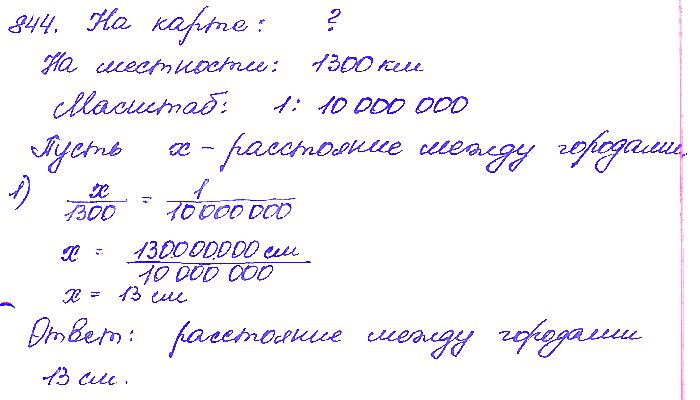 844. На карте: ?
На местности: 1300 км
Масштаб: 1: 10 000 000
Пусть x – расстояние между городами.
1) x/1300 = 1/10 000 000
x = 130.000.000 см/10 000 000
x = 13 см
Ответ: расстояние между городами
13 см.